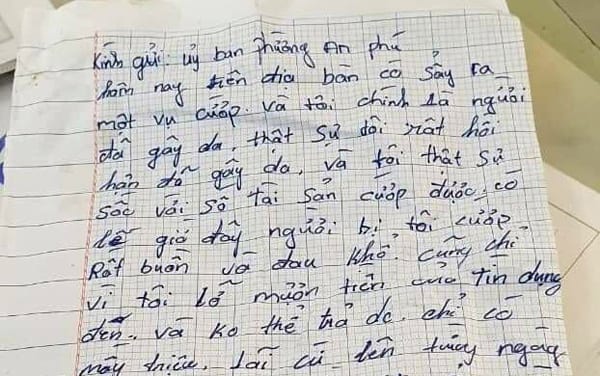 Kính gửi: ủy ban phường An phú
hôm nay trên địa bàn có sảy ra
một vụ cướp. và tôi chính là người
đã gây da, thật sự tôi rất hối
hận đã gây da, và tôi thật sự
sốc với số tài sản cướp được, có
lẽ giờ đây người bị tôi cướp
Rất buồn và đau khổ. cũng chỉ
vì tôi lỡ mượn tiền của tín dụng
đen. và ko thể trả dc. chỉ có
mấy triệu. lãi cứ lên từng ngày